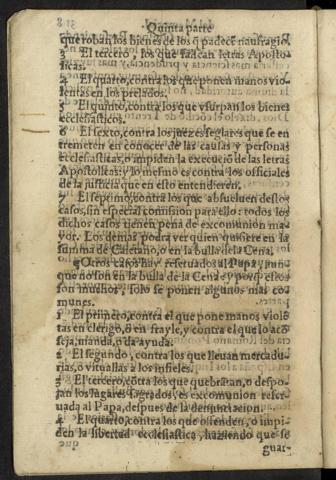 Quinta parte
que roban los bienes de los q̃ padecẽ naufragio.
3 El tercero, los que falcan letras Aposto-
licas.
4 El quarto, contra los que ponen manos vio-
lentas en los prelados.
5 El quinto, contra los que vsurpan los bienes
ecclesiasticos.
6 El sexto, contra los juezes seglares que se en
tremeten en conocer de las causas y personas
ecclesiasticas, o impiden la execuciõ de las letras
Apostolicas: y lo mesmo es contra los officiales
de la justicia que en esto entendieren.
7 El septimo, contra los que absueluen destos
casos, sin especial comission para ello: todos los
dichos casos tienen pena de excomunion ma-
yor. Los demas podra ver quien quisiere en la
summa de Caietano, o en la bulla de la Cena.
¶Otros casos hay reseruados al Papa, aun-
que no son en la bulla de la Cena: y porq̃ estos
son muchos, solo se ponen algunos mas co-
munes.
1 El primero, contra el que pone manos violẽ
tas en clerigo, o en frayle, y contra el que lo acõ
seja, manda, o da ayuda.
2 El segundo, contra los que lleuan mercadu-
rias, o vituallas a los infieles.
3 El tercero, cõtra los que quebrãtan, o despo-
jan los lugares sagrados, es excomunion reser-
uada al Papa, despues de la denunciacion.
4 El quarto, contra los que offenden, o impi-
den la libertad ecclesiastica, haziendo que se
guar-